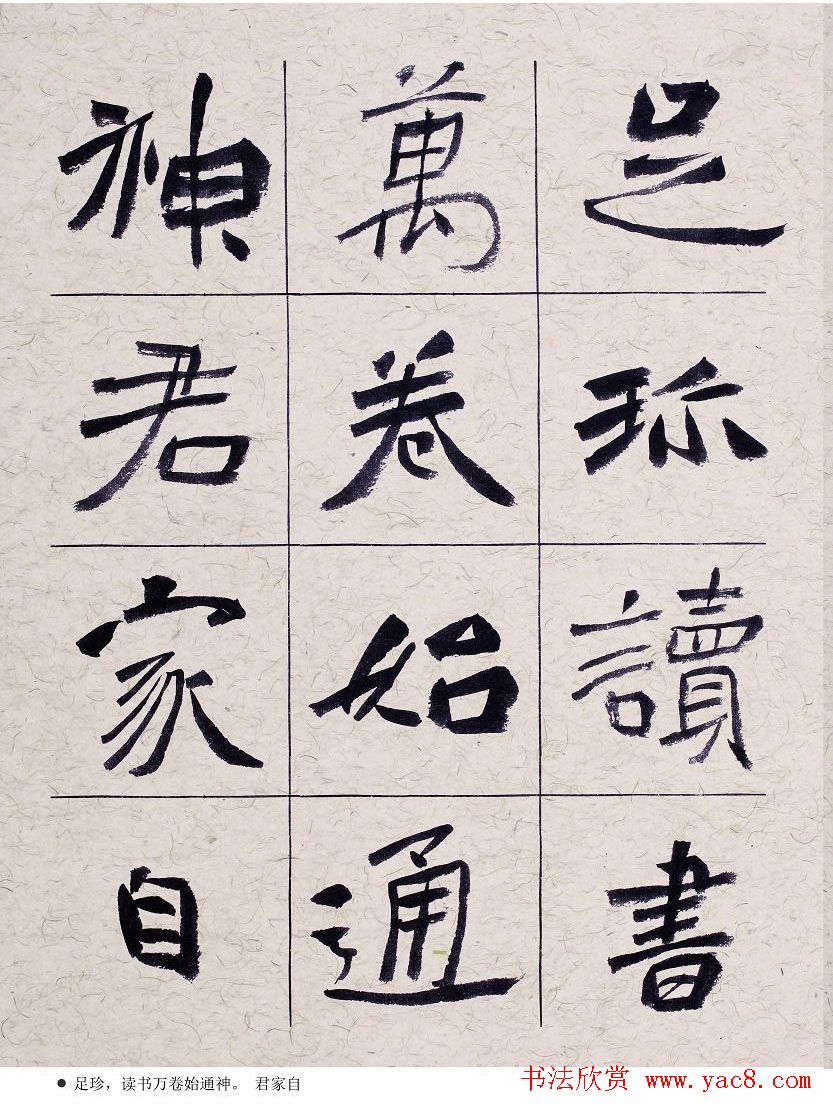 足珎讀書
萬卷始通
神君家自
● 足珍，读书万卷始通神。 君家自
书法欣赏 www.yac8.com